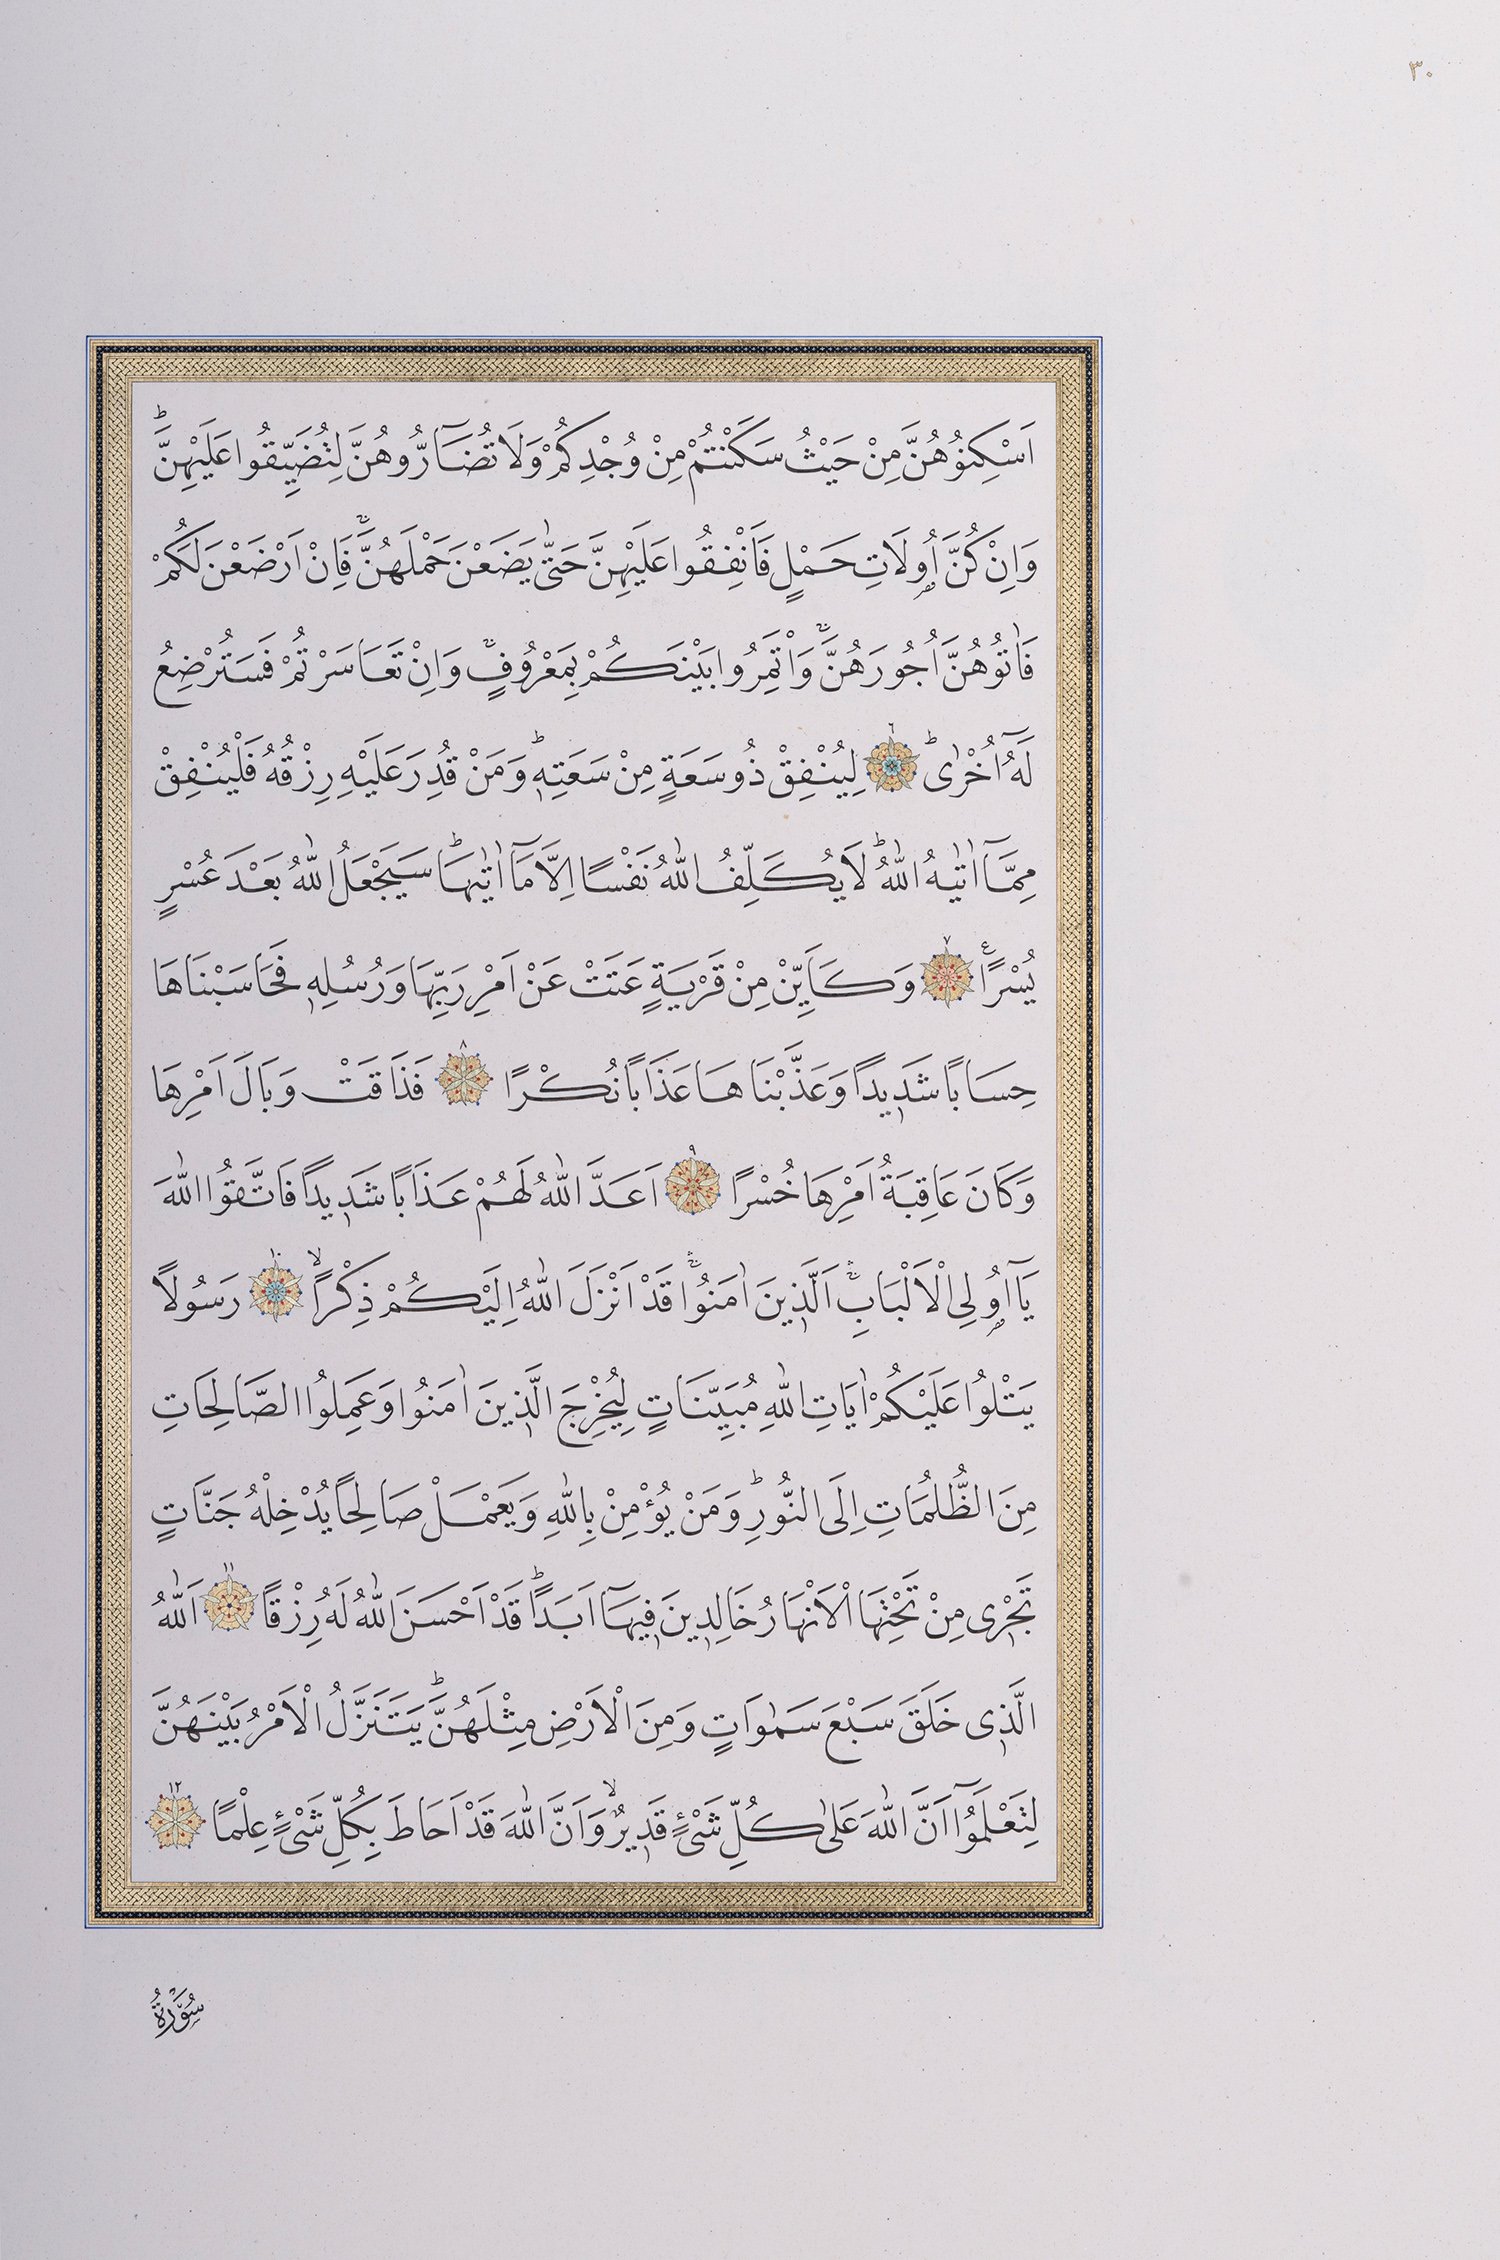 ٣٠
اَسْكِنُوهُنَّ مِنْ حَيْثُ سَكَنْتُمْ مِنْ وُجْدِكُمْ وَلَا تُضَٓارُّوهُنَّ لِتُضَيِّقُوا عَلَيْهِنَّۜ
وَاِنْ كُنَّ اُو۬لَاتِ حَمْلٍ فَاَنْفِقُوا عَلَيْهِنَّ حَتّٰى يَضَعْنَ حَمْلَهُنَّۚ فَاِنْ اَرْضَعْنَ لَكُمْ
فَاٰتُوهُنَّ اُجُورَهُنَّۚ وَاْتَمِرُوا بَيْنَكُمْ بِمَعْرُوفٍۚ وَاِنْ تَعَاسَرْتُمْ فَسَتُرْضِعُ
لَهُٓ اُخْرٰىۜ ٦ لِيُنْفِقْ ذُو سَعَةٍ مِنْ سَعَتِه۪ۜ وَمَنْ قُدِرَ عَلَيْهِ رِزْقُهُ فَلْيُنْفِقْ
مِمَّٓا اٰتٰيهُ اللّٰهُۜ لَا يُكَلِّفُ اللّٰهُ نَفْسًا اِلَّا مَٓا اٰتٰيهَاۜ سَيَجْعَلُ اللّٰهُ بَعْدَ عُسْرٍ
يُسْرًا۟ ٧ وَكَاَيِّنْ مِنْ قَرْيَةٍ عَتَتْ عَنْ اَمْرِ رَبِّهَا وَرُسُلِه۪ فَحَاسَبْنَاهَا
حِسَابًا شَد۪يدًا وَعَذَّبْنَاهَا عَذَابًا نُكْرًا ٨ فَذَاقَتْ وَبَالَ اَمْرِهَا
وَكَانَ عَاقِبَةُ اَمْرِهَا خُسْرًا ٩ اَعَدَّ اللّٰهُ لَهُمْ عَذَابًا شَد۪يدًا فَاتَّقُوا اللّٰهَ
يَٓا اُو۬لِي الْاَلْبَابِۚۛ اَلَّذ۪ينَ اٰمَنُواۚۛ قَدْ اَنْزَلَ اللّٰهُ اِلَيْكُمْ ذِكْرًاۙ ١٠ رَسُولًا
يَتْلُوا عَلَيْكُمْ اٰيَاتِ اللّٰهِ مُبَيِّنَاتٍ لِيُخْرِجَ الَّذ۪ينَ اٰمَنُوا وَعَمِلُوا الصَّالِحَاتِ
مِنَ الظُّلُمَاتِ اِلَى النُّورِۜ وَمَنْ يُؤْمِنْ بِاللّٰهِ وَيَعْمَلْ صَالِحًا يُدْخِلْهُ جَنَّاتٍ
تَجْر۪ي مِنْ تَحْتِهَا الْاَنْهَارُ خَالِد۪ينَ ف۪يهَٓا اَبَدًاۜ قَدْ اَحْسَنَ اللّٰهُ لَهُ رِزْقًا ١١ اَللّٰهُ
الَّذ۪ي خَلَقَ سَبْعَ سَمٰوَاتٍ وَمِنَ الْاَرْضِ مِثْلَهُنَّۜ يَتَنَزَّلُ الْاَمْرُ بَيْنَهُنَّ
لِتَعْلَمُٓوا اَنَّ اللّٰهَ عَلٰى كُلِّ شَيْءٍ قَد۪يرٌۙ وَاَنَّ اللّٰهَ قَدْ اَحَاطَ بِكُلِّ شَيْءٍ عِلْمًا ١٢
سُورَةُ